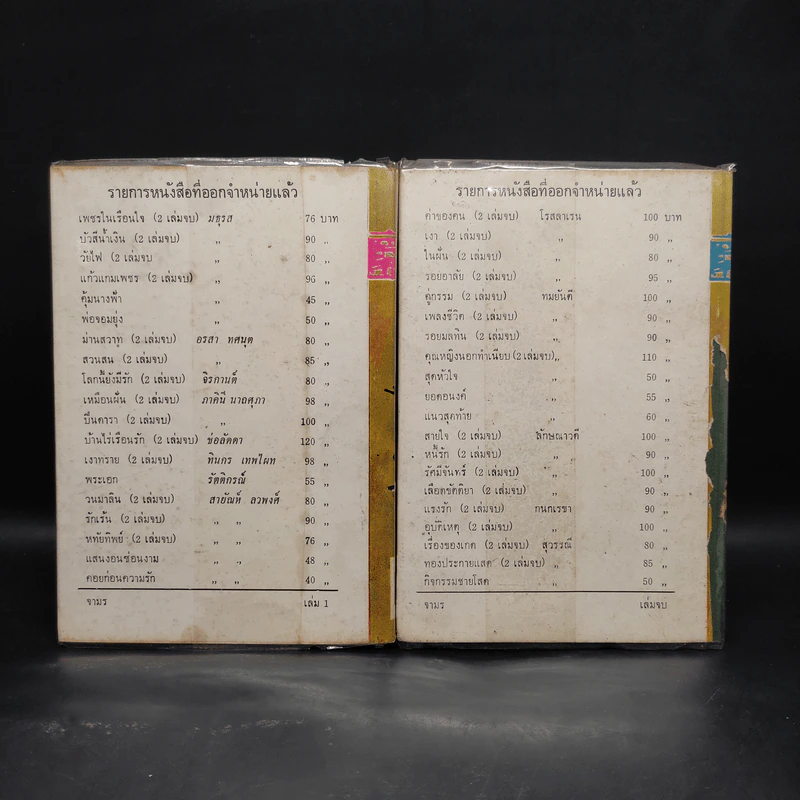 รายการหนังสือที่ออกจำหน่ายแล้ว
เพชรในเรือนใจ (2 เล่มจบ) มธุรส 76 บาท
บัวสีน้ำเงิน (2 เล่มจบ) ,, 90 ,,
วัยไฟ (2 เล่มจบ ,, 80 ,,
แก้วแกมเพชร (2 เล่มจบ) ,, 96 ,,
คุ้มนางฟ้า ,, 45 ,,
พ่อจอมยุ่ง ,, 50 ,,
ม่านสวาท (2 เล่มจบ) อรสา ทศนุต 80 ,,
สวนสน (2 เล่มจบ) ,, 85 ,,
โลกนี้ยังมีรัก (2 เล่มจบ) จิรกานต์ 80 ,,
เหมือนฝัน (2 เล่มจบ) ภาคินี นาถศุภา 98 ,,
ปิ่นดารา (2 เล่มจบ) ,, 100 ,,
บ้านไร่เรือนรัก (2 เล่มจบ) ช่อลัดดา 120 ,,
เงาทราย (2 เล่มจบ) ทินกร เทพไผท 98 ,,
พระเอก รัตติกรณ์ 55 ,,
วนมาลิน (2 เล่มจบ) สายัณห์ ลวพงศ์ 80 ,,
รักเร้น (2 เล่มจบ) ,, ,, 90 ,,
หทัยทิพย์ (2 เล่มจบ) ,, ,, 76 ,,
แสนงอนซ่อนงาม ,, ,, 48 ,,
คอยก่อนความรัก ,, ,, 40 ,,
จามร เล่ม 1
รายการหนังสือที่ออกจำหน่ายแล้ว
ค่าของคน (2 เล่มจบ) โรสลาเรน 100 บาท
เงา (2 เล่มจบ) ,, 90 ,,
ในฝัน (2 เล่มจบ) ,, 80 ,,
รอยอาลัย (2 เล่มจบ) ,, 95 ,,
คู่กรรม (2 เล่มจบ) ทมยันตี 100 ,,
เพลงชีวิต (2 เล่มจบ) ,, 90 ,,
รอยมลทิน (2 เล่มจบ) ,, 90 ,,
คุณหญิงนอกทำเนียบ (2 เล่มจบ) ,, 110 ,,
สุดหัวใจ ,, 50 ,,
ยอดอนงค์ ,, 55 ,,
แนวสุดท้าย ,, 60 ,,
สายใจ (2 เล่มจบ) ลักษณาวดี 100 ,,
หนี้รัก (2 เล่มจบ) ,, 90 ,,
รัศมีจันทร์ (2 เล่มจบ) ,, 100 ,,
เลือดขัตติยา (2 เล่มจบ) ,, 90 ,,
แรงรัก (2 เล่มจบ) กนกเรขา 90 ,,
อุบัติเหตุ (2 เล่มจบ) ,, 100 ,,
เรื่องของเกด (2 เล่มจบ) สุวรรณี 80 ,,
ทองประกายแสด (2 เล่มจบ) ,, 85 ,,
กิจกรรมชายโสด ,, 50 ,,
จามร เล่มจบ